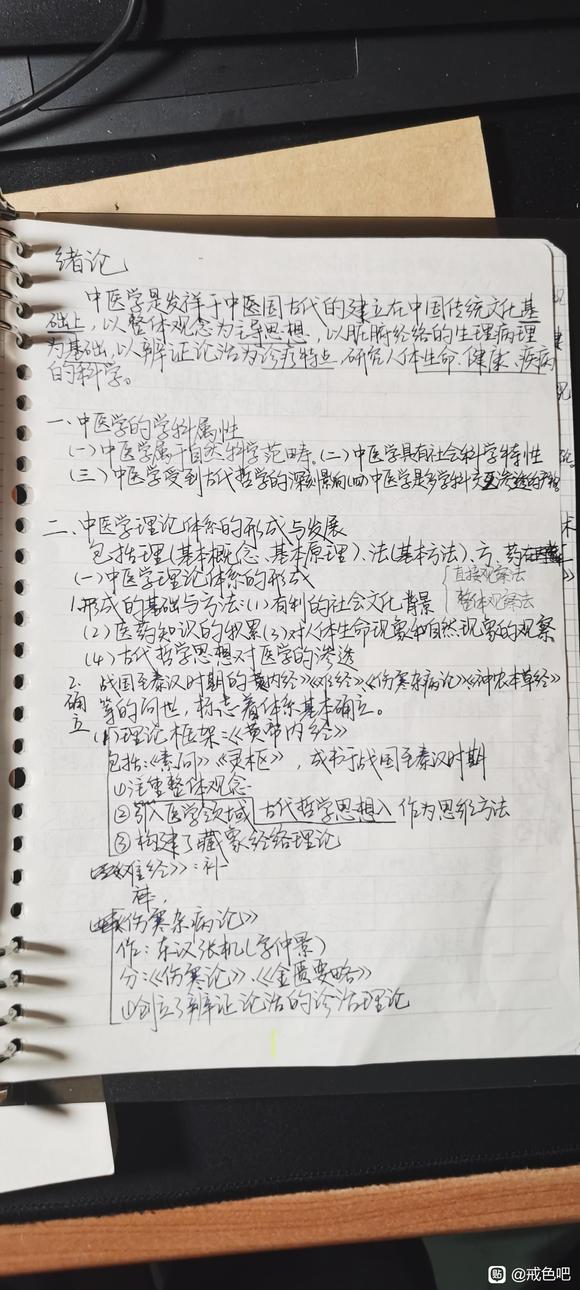 绪论
中医学是发祥于中国古代的建立在中国传统文化基
础上,以整体观念为主导思想,以脏腑经络的生理病理
为基础,以辨证论治为诊疗特点,研究人体生命、健康、疾病
的科学。
一、中医学的学科属性
(一)中医学属于自然科学范畴。(二)中医学具有社会科学特性
(三)中医学受到古代哲学的深刻影响(四)中医学是多学科交互渗透的产物
二、中医学理论体系的形成与发展
包括理(基本概念、基本原理)、法(基本方法)、方、药
(一)中医学理论体系的形成
直接观察法
1.形成的基础与方法:(1)有利的社会文化背景
整体观察法
(2)医药知识的积累(3)对人体生命现象和自然现象的观察
(4)古代哲学思想对医学的渗透
2.确立
战国至秦汉时期的《内经》《难经》《伤寒杂病论》《神农本草经》
等的问世,标志着体系基本确立。
(1)理论框架:《黄帝内经》
包括:《素问》《灵枢》,成书于战国至秦汉时期
①注重整体观念
②引入医学领域 古代哲学思想入 作为思维方法
③构建了藏象经络理论
《难经》:补
《伤寒杂病论》
作:东汉张机(字仲景)
分:《伤寒论》、《金匮要略》
①创立了辨证论治的诊治理论
贴 @戒色吧